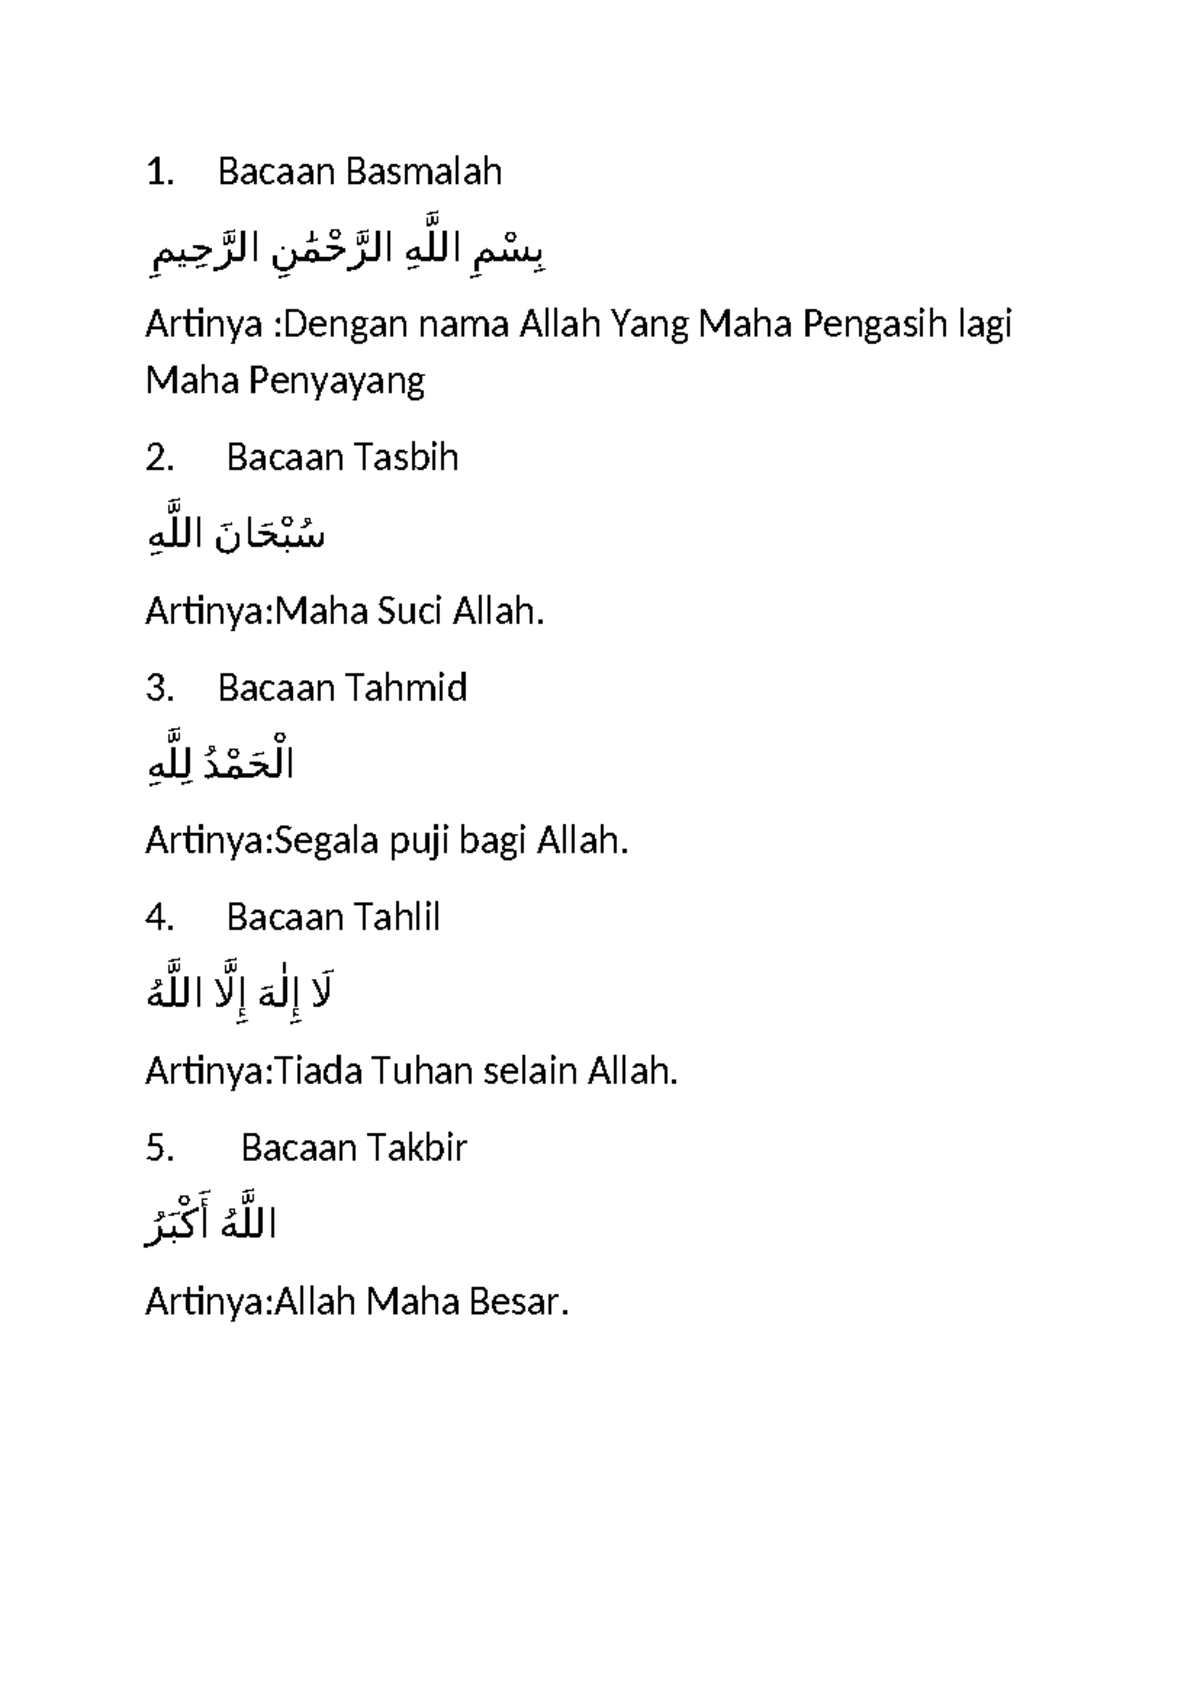 1. Bacaan Basmalah
بِسْمِ اللَّهِ الرَّحْمَٰنِ الرَّحِيمِ
Artinya :Dengan nama Allah Yang Maha Pengasih lagi
Maha Penyayang
2. Bacaan Tasbih
سُبْحَانَ اللَّهِ
Artinya:Maha Suci Allah.
3. Bacaan Tahmid
الْحَمْدُ لِلَّهِ
Artinya:Segala puji bagi Allah.
4. Bacaan Tahlil
لَا إِلٰهَ إِلَّا اللَّهُ
Artinya:Tiada Tuhan selain Allah.
5. Bacaan Takbir
اللَّهُ أَكْبَرُ
Artinya:Allah Maha Besar.